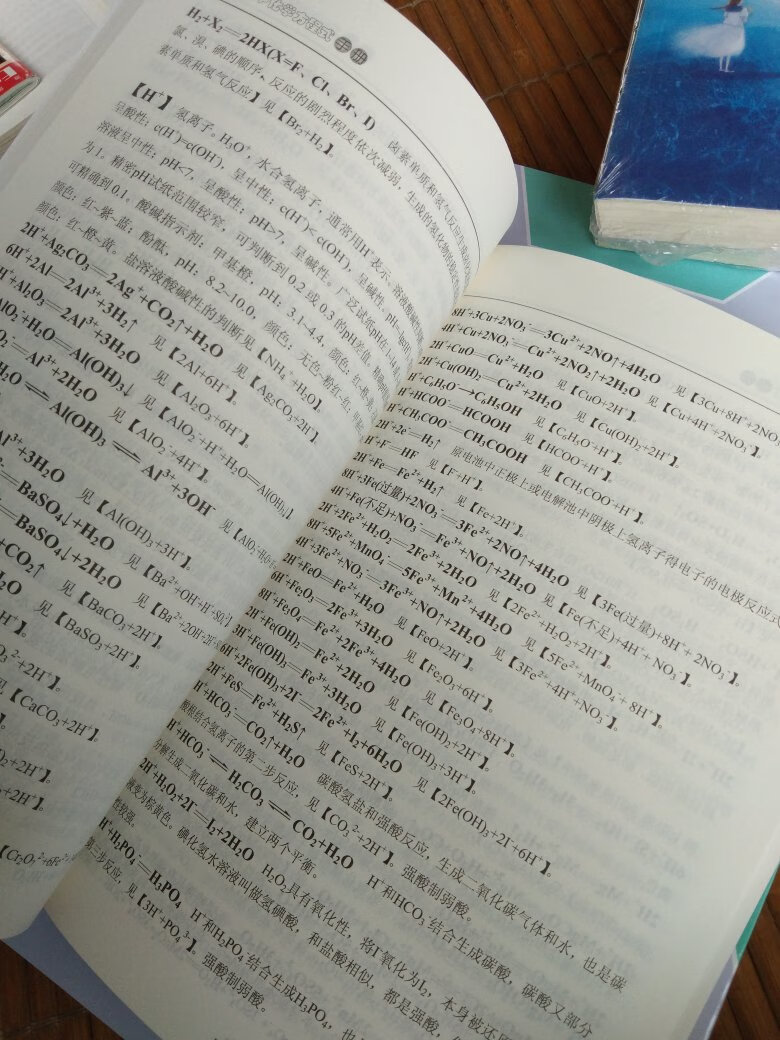 化学方程式手册
H₂+X₂══2HX(X=F、Cl、Br、I) 卤素单质和氢气反应生成卤化氢
氯、溴、碘的顺序，反应的剧烈程度依次减弱，生成的氢化物的稳定性
素单质和氢气反应】见【Br₂+H₂】。
【H⁺】氢离子。H₃O⁺，水合氢离子，通常用H⁺表示。溶液酸碱性
呈酸性；c(H⁺)=c(OH⁻)，呈中性；c(H⁺)<c(OH⁻)，呈碱性。pH=-lg
溶液呈中性；pH<7，呈酸性；pH>7，呈碱性。广泛试纸pH在1~14
为1。精密pH试纸范围较窄，可判断到0.2或0.3的pH差值。
可精确到0.1。酸碱指示剂：甲基橙，pH：3.1~4.4，颜色：红~橙~黄
颜色：红~紫~蓝；酚酞，pH：8.2~10.0，颜色：无色~粉红~红；
颜色：红~橙~黄。盐溶液酸碱性的判断见【NH₄⁺+H₂O】。
2H⁺+Ag₂CO₃══2Ag⁺+CO₂↑+H₂O 见【Ag₂CO₃+2H⁺】。
6H⁺+2Al══2Al³⁺+3H₂↑ 见【2Al+6H⁺】。
H⁺+Al₂O₃══2Al³⁺+3H₂O 见【Al₂O₃+6H⁺】。
AlO₂⁻+H₂O══Al(OH)₃↓ 见【AlO₂⁻+H⁺+H₂O══Al(OH)₃↓】
O₂⁻══Al³⁺+2H₂O 见【AlO₂⁻+4H⁺】。
H₂O⇌Al(OH)₃⇌Al³⁺+3OH⁻ 见
Al³⁺+3H₂O 见【Al(OH)₃+3H⁺】。
══BaSO₄↓+H₂O 见【Ba²⁺+OH⁻+H⁺+SO₄²⁻】
══BaSO₄↓+2H₂O 见【Ba²⁺+2OH⁻+2H⁺
+CO₂↑ 见【BaCO₃+2H⁺】。
H₂O 见【BaSO₃+2H⁺】。
H⁺】。
O₃²⁻+2H⁺】。
见【CaCO₃+2H⁺】。
)₂+2H⁺】。
+2H⁺】。
【Cr₂O₇²⁻+6Fe²⁺
8H⁺+3Cu+2NO₃⁻══3Cu²⁺+2NO↑+4H₂O 见【3Cu+8H⁺+2NO₃⁻
4H⁺+Cu+2NO₃⁻══Cu²⁺+2NO₂↑+2H₂O 见【Cu+4H⁺+2NO₃⁻】。
2H⁺+CuO══Cu²⁺+H₂O 见【CuO+2H⁺】。
2H⁺+Cu(OH)₂══Cu²⁺+2H₂O 见【Cu(OH)₂+2H⁺】。
H⁺+C₆H₅O⁻→C₆H₅OH 见【C₆H₅O⁻+H⁺】。
H⁺+HCOO⁻══HCOOH 见【HCOO⁻+H⁺】。
H⁺+CH₃COO⁻══CH₃COOH 见【CH₃COO⁻+H⁺】。
2H⁺+2e⁻══H₂↑ 原电池中正极上或电解池中阴极上氢离子得电子的电极反应式
H⁺+F⁻══HF 见【F⁻+H⁺】。
2H⁺+Fe══Fe²⁺+H₂↑ 见【Fe+2H⁺】。
8H⁺+3Fe(过量)+2NO₃⁻══3Fe²⁺+2NO↑+4H₂O 见【3Fe(过量)+8H⁺+2NO₃⁻】。
4H⁺+Fe(不足)+NO₃⁻══Fe³⁺+NO↑+2H₂O 见【Fe(不足)+4H⁺+NO₃⁻】。
2H⁺+2Fe²⁺+H₂O₂══2Fe³⁺+2H₂O 见【2Fe²⁺+H₂O₂+2H⁺】。
8H⁺+5Fe²⁺+MnO₄⁻══5Fe³⁺+Mn²⁺+4H₂O 见【5Fe²⁺+MnO₄⁻+8H⁺】。
4H⁺+3Fe²⁺+NO₃⁻══3Fe³⁺+NO↑+2H₂O 见【3Fe²⁺+4H⁺+NO₃⁻】。
2H⁺+FeO══Fe²⁺+H₂O 见【FeO+2H⁺】。
6H⁺+Fe₂O₃══2Fe³⁺+3H₂O 见【Fe₂O₃+6H⁺】。
8H⁺+Fe₃O₄══Fe²⁺+2Fe³⁺+4H₂O 见【Fe₃O₄+8H⁺】。
2H⁺+Fe(OH)₂══Fe²⁺+2H₂O 见【Fe(OH)₂+2H⁺】。
3H⁺+Fe(OH)₃══Fe³⁺+3H₂O 见【Fe(OH)₃+3H⁺】。
6H⁺+2Fe(OH)₃+2I⁻══2Fe²⁺+I₂+6H₂O 见【2Fe(OH)₃+2I⁻+6H⁺】。
2H⁺+FeS══Fe²⁺+H₂S↑ 见【FeS+2H⁺】。
H⁺+HCO₃⁻══CO₂↑+H₂O 碳酸氢盐和强酸反应，生成二氧化碳气体和水，也是碳
酸根结合氢离子的第二步反应，见【CO₃²⁻+2H⁺】。强酸制弱酸。
H⁺+HCO₃⁻⇌H₂CO₃⇌CO₂+H₂O H⁺和HCO₃⁻结合生成碳酸，碳酸又部分
分解生成二氧化碳和水，建立两个平衡。
2H⁺+H₂O₂+2I⁻══I₂+2H₂O H₂O₂具有氧化性，将I⁻氧化为I₂，本身被还原
液变为棕黄色。碘化氢水溶液叫做氢碘酸，和盐酸相似，都是强酸，
性较强。
H⁺+H₂PO₄⁻══H₃PO₄ H⁺和H₂PO₄⁻结合生成H₃PO₄，也
第三步反应，见【3H⁺+PO₄³⁻】。强酸制弱酸。